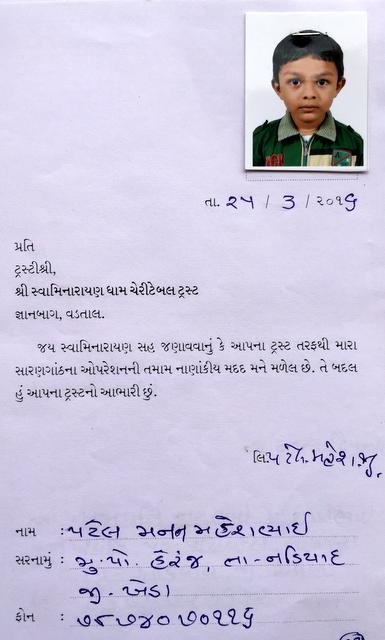 તા. ૨૫ / 3 / ૨૦૧૬
પ્રતિ
ટ્રસ્ટીશ્રી,
શ્રી સ્વામિનારાયણ ધામ ચેરીટેબલ ટ્રસ્ટ
જ્ઞાનબાગ, વડતાલ.
જય સ્વામિનારાયણ સહ જણાવવાનું કે આપના ટ્રસ્ટ તરફથી મારા
સારણગાંઠના ઓપરેશનની તમામ નાણાંકીય મદદ મને મળેલ છે. તે બદલ
હું આપના ટ્રસ્ટનો આભારી છું.
લિ.
નામ : પટેલ મનન મહેશભાઈ
સરનામું : મુ.પો. હેરંજ, તા-નડિયાદ
જી-ખેડા
ફોન : ૭૮૭૪૦૭૦૧૧૬